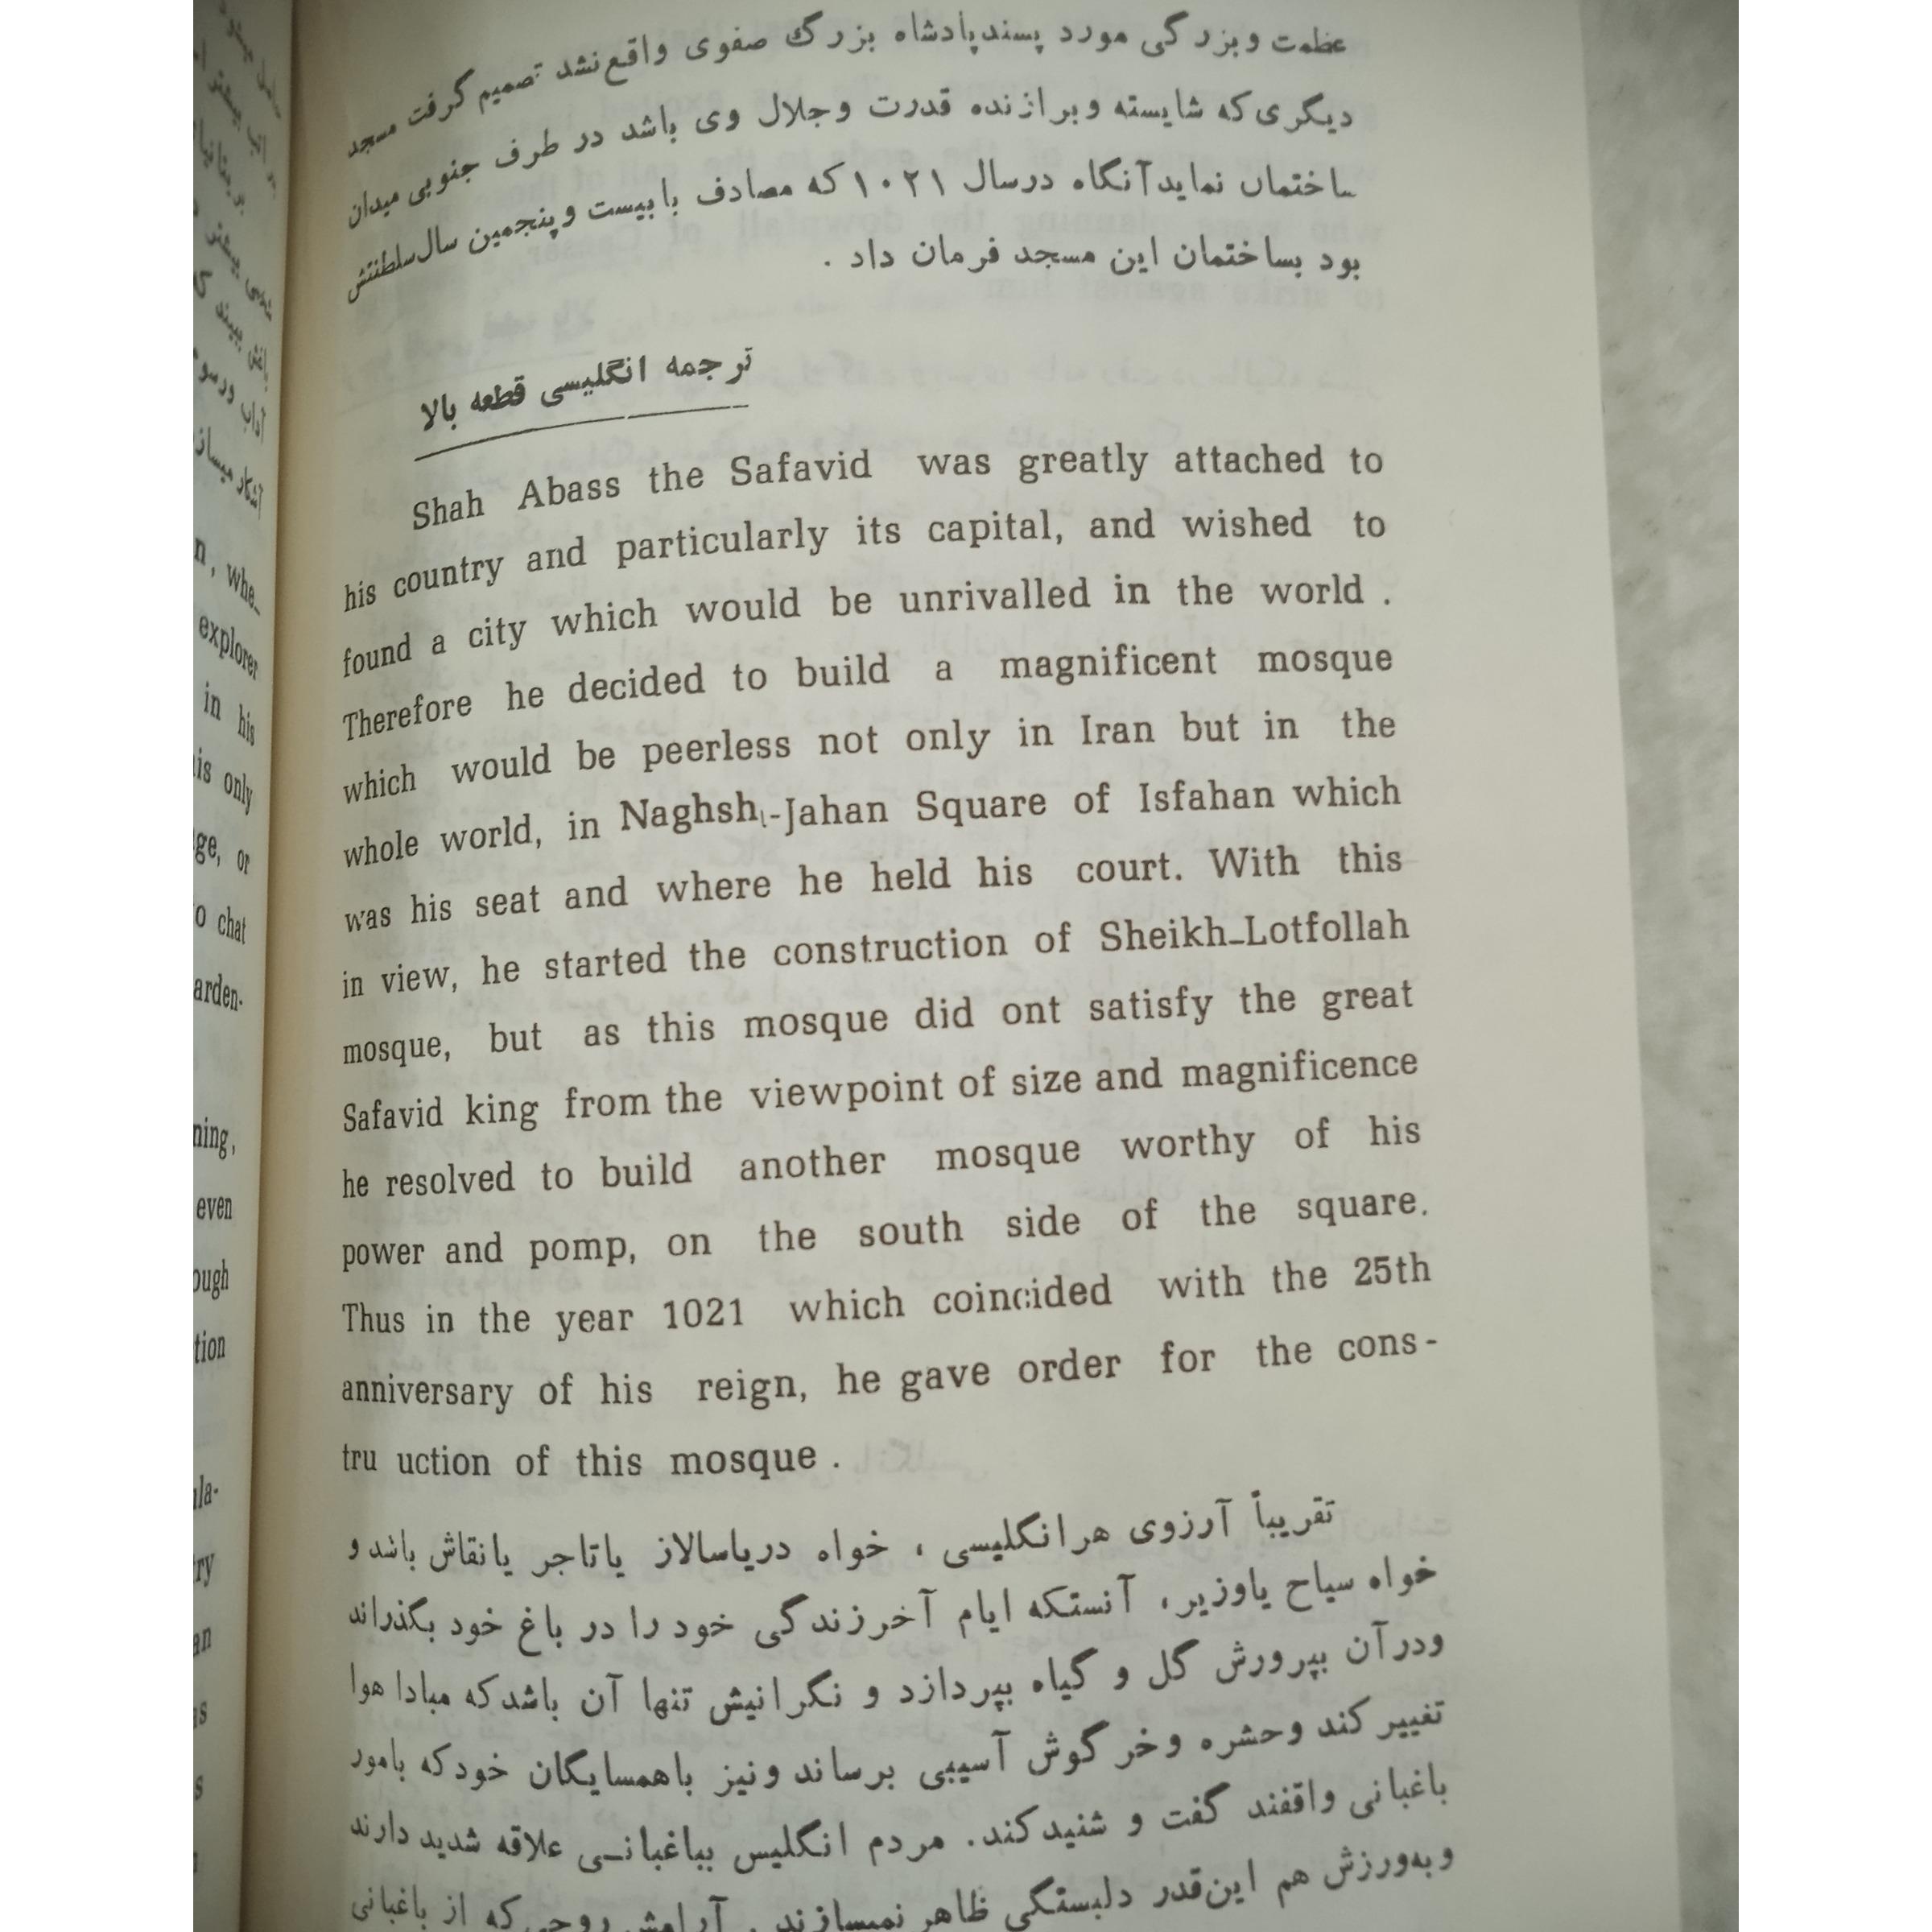 عظمت و بزرگی مورد پسند پادشاه بزرگ صفوی واقع نشد تصمیم گرفت مسجد
دیگری که شایسته و برازنده قدرت و جلال وی باشد در طرف جنوبی میدان
ساختمان نماید آنگاه در سال ۱۰۲۱ که مصادف با بیست و پنجمین سال سلطنتش
بود بساختمان این مسجد فرمان داد .
ترجمه انگلیسی قطعه بالا
Shah Abass the Safavid was greatly attached to
his country and particularly its capital, and wished to
found a city which would be unrivalled in the world .
Therefore he decided to build a magnificent mosque
which would be peerless not only in Iran but in the
whole world, in Naghshı-Jahan Square of Isfahan which
was his seat and where he held his court. With this
in view, he started the construction of Sheikh-Lotfollah
mosque, but as this mosque did ont satisfy the great
Safavid king from the viewpoint of size and magnificence
he resolved to build another mosque worthy of his
power and pomp, on the south side of the square.
Thus in the year 1021 which coincided with the 25th
anniversary of his reign, he gave order for the cons-
tru uction of this mosque .
تقریباً آرزوی هر انگلیسی ، خواه دریاسالار یا تاجر یا نقاش باشد و
خواه سیاح یا وزیر، آنستکه ایام آخر زندگی خود را در باغ خود بگذراند
و در آن بپرورش گل و گیاه بپردازد و نگرانیش تنها آن باشد که مبادا هوا
تغییر کند و حشره و خرگوش آسیبی برساند و نیز با همسایگان خود که بامور
باغبانی واقفند گفت و شنید کند. مردم انگلیس بباغبانی علاقه شدید دارند
و به‌ورزش هم این‌قدر دلبستگی ظاهر نمیسازند . آرامش روحی که از باغبانی
n, whe-
explorer
in his
is only
or
chat
even